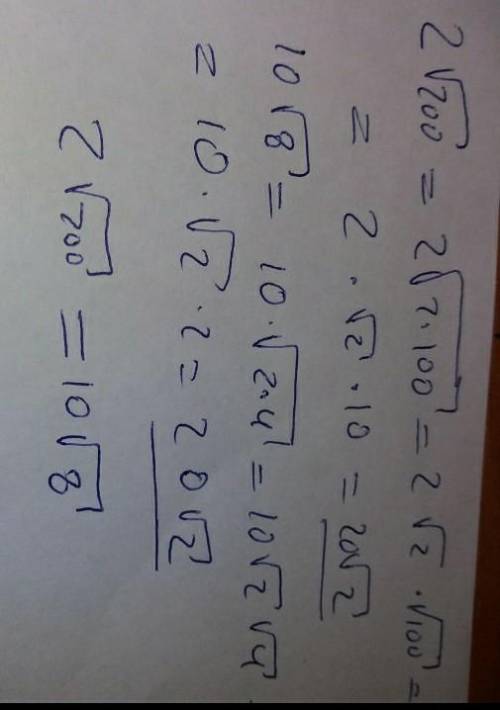 2√200 = 2√2·100 = 2√2 · √100 =
= 2 · √2 · 10 = 20√2
10√8 = 10·√2·4 = 10√2 √4
= 10·√2·2 = 20√2
2√200 = 10√8